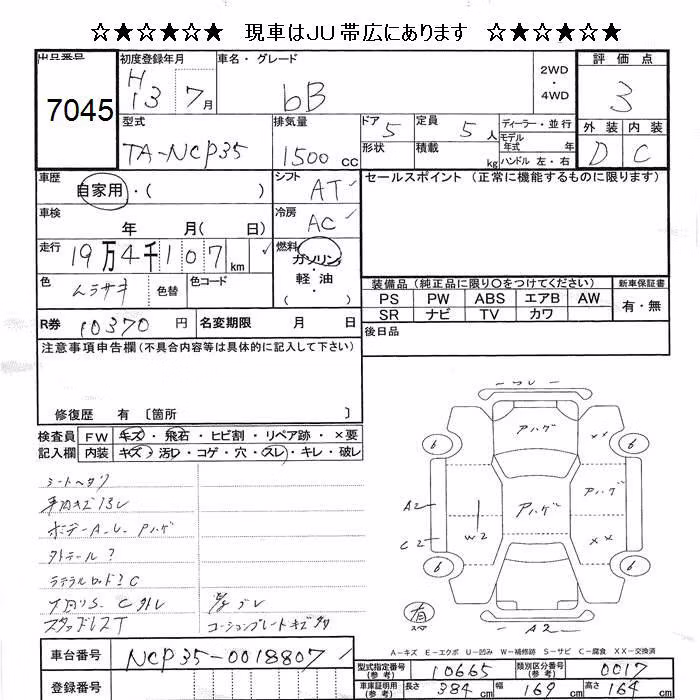 ☆★☆★☆★ 現車はJU帯広にあります ☆★☆★☆★
出品番号 初度登録年月 車名・グレード 評価点
7045 H13 7月 bB 2WD・4WD 3
型式 排気量 ドア 定員 ディーラー・並行 外装 内装
TA-NCP35 1500cc 5 5人 モデル年式 年 D C
形状 積載 kg ハンドル 左・右
車歴 自家用・( ) シフト AT セールスポイント (正常に機能するものに限ります)
車検 年 月( 日) 冷房 AC
走行 19万4千107km 燃料 ガソリン・軽油
色 ムラサキ 色替 色コード
装備品 (純正品に限り○をつけてください) 新車保証書
PS PW ABS エアB AW 有・無
SR ナビ TV カワ
R券 10370円 名変期限 月 日 後日品
注意事項申告欄(不具合内容等は具体的に記入して下さい)
修復歴 有 〔箇所 〕
検査員 FW キズ・飛石・ヒビ割・リペア跡・×要
記入欄 内装 キズ・汚り・コゲ・穴・スレ・キレ・破レ
シートヘタリ
車内キズ
ボデーA.U. Pハゲ
外テール?
C
スタッドレスT
コーションプレートキズ
Pハゲ
××
6 6
A2 Pハゲ Pハゲ
C2 W2 ××
6 6
有
A2
A-キズ E-エクボ U-凹み W-補修跡 S-サビ C-腐食 XX-交換済
車台番号 NCP35-0018807
型式指定番号(参考) 10665 類別区分番号(参考) 0017
登録番号 車庫証明用(参考) 長さ 384cm 幅 169cm 高さ 164cm